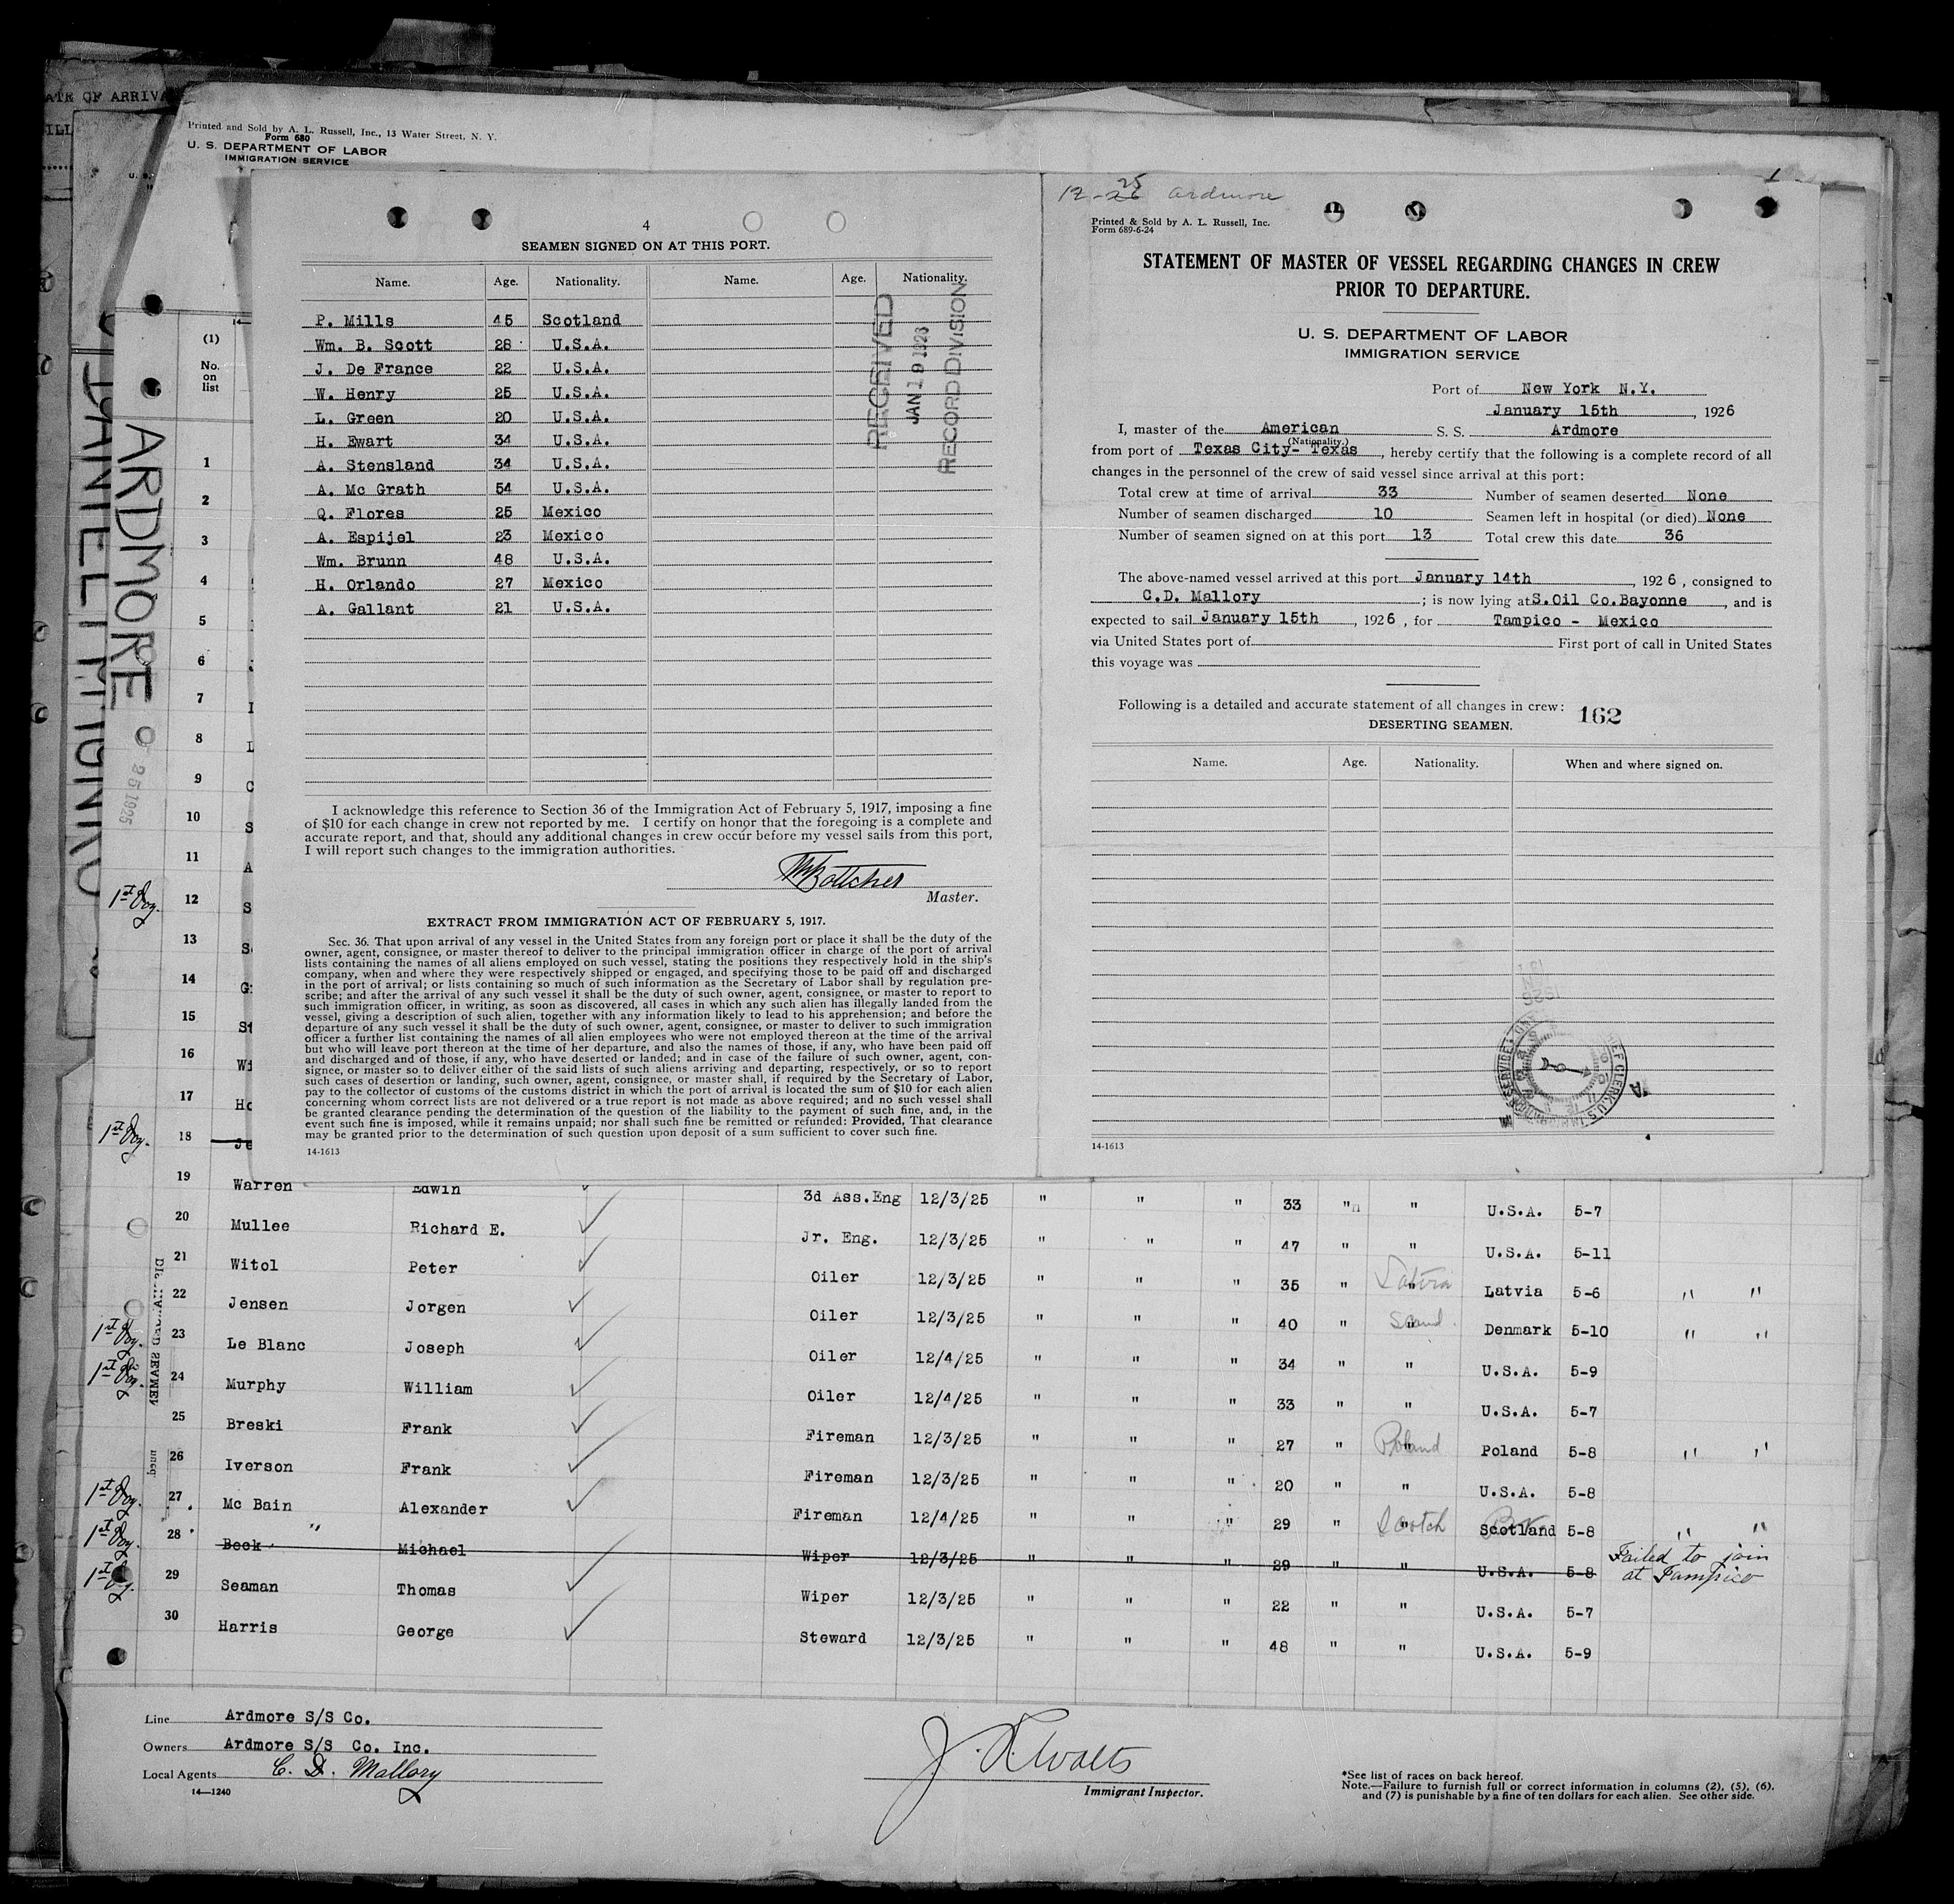 ATE OF ARRIVA
Printed and Sold by A. L. Russell, Inc., 13 Water Street, N. Y.
Form 680
U. S. DEPARTMENT OF LABOR
IMMIGRATION SERVICE
(1)
No. on list
ARDMORE
4
SEAMEN SIGNED ON AT THIS PORT.
Name. Age. Nationality. Name. Age. Nationality.
P. Mills 45 Scotland
Wm. B. Scott 28 U.S.A.
J. De France 22 U.S.A.
W. Henry 25 U.S.A.
L. Green 20 U.S.A.
H. Ewart 34 U.S.A.
A. Stensland 34 U.S.A.
A. Mc Grath 54 U.S.A.
Q. Flores 25 Mexico
A. Espijel 23 Mexico
Wm. Brunn 48 U.S.A.
H. Orlando 27 Mexico
A. Gallant 21 U.S.A.
RECEIVED
JAN 19 1926
RECORD DIVISION
I acknowledge this reference to Section 36 of the Immigration Act of February 5, 1917, imposing a fine
of $10 for each change in crew not reported by me. I certify on honor that the foregoing is a complete and
accurate report, and that, should any additional changes in crew occur before my vessel sails from this port,
I will report such changes to the immigration authorities.
Master.
EXTRACT FROM IMMIGRATION ACT OF FEBRUARY 5, 1917.
Sec. 36. That upon arrival of any vessel in the United States from any foreign port or place it shall be the duty of the
owner, agent, consignee, or master thereof to deliver to the principal immigration officer in charge of the port of arrival
lists containing the names of all aliens employed on such vessel, stating the positions they respectively hold in the ship's
company, when and where they were respectively shipped or engaged, and specifying those to be paid off and discharged
in the port of arrival; or lists containing so much of such information as the Secretary of Labor shall by regulation pre-
scribe; and after the arrival of any such vessel it shall be the duty of such owner, agent, consignee, or master to report to
such immigration officer, in writing, as soon as discovered, all cases in which any such alien has illegally landed from the
vessel, giving a description of such alien, together with any information likely to lead to his apprehension; and before the
departure of any such vessel it shall be the duty of such owner, agent, consignee, or master to deliver to such immigration
officer a further list containing the names of all alien employees who were not employed thereon at the time of the arrival
but who will leave port thereon at the time of her departure, and also the names of those, if any, who have been paid off
and discharged and of those, if any, who have deserted or landed; and in case of the failure of such owner, agent, con-
signee, or master so to deliver either of the said lists of such aliens arriving and departing, respectively, or so to report
such cases of desertion or landing, such owner, agent, consignee, or master shall, if required by the Secretary of Labor,
pay to the collector of customs of the customs district in which the port of arrival is located the sum of $10 for each alien
concerning whom correct lists are not delivered or a true report is not made as above required; and no such vessel shall
be granted clearance pending the determination of the question of the liability to the payment of such fine, and, in the
event such fine is imposed, while it remains unpaid; nor shall such fine be remitted or refunded: Provided, That clearance
may be granted prior to the determination of such question upon deposit of a sum sufficient to cover such fine.
14-1613
1
12-25 Ardmore
Printed & Sold by A. L. Russell, Inc.
Form 689-6-24
STATEMENT OF MASTER OF VESSEL REGARDING CHANGES IN CREW
PRIOR TO DEPARTURE.
U. S. DEPARTMENT OF LABOR
IMMIGRATION SERVICE
Port of New York N.Y.
January 15th, 1926
I, master of the American S. S. Ardmore
(Nationality.)
from port of Texas City- Texas, hereby certify that the following is a complete record of all
changes in the personnel of the crew of said vessel since arrival at this port:
Total crew at time of arrival 33 Number of seamen deserted None
Number of seamen discharged 10 Seamen left in hospital (or died) None
Number of seamen signed on at this port 13 Total crew this date 36
The above-named vessel arrived at this port January 14th, 1926, consigned to
C.D. Mallory; is now lying at S.Oil Co.Bayonne, and is
expected to sail January 15th, 1926, for Tampico - Mexico
via United States port of First port of call in United States
this voyage was
Following is a detailed and accurate statement of all changes in crew: 162
DESERTING SEAMEN.
Name. Age. Nationality. When and where signed on.
14-1613
1
2
3
4
5
6
7
8
9
10
11
1st Voy. 12
13
14
15
16
17
1st Voy. 18
19 Warren Edwin 3d Ass.Eng 12/3/25 " " " 33 " " U.S.A. 5-7
20 Mullee Richard E. Jr. Eng. 12/3/25 " " " 47 " " U.S.A. 5-11
21 Witol Peter Oiler 12/3/25 " " " 35 " Latvia Latvia 5-6 " "
22 Jensen Jorgen Oiler 12/3/25 " " " 40 " Scand. Denmark 5-10 " "
1st Voy. 23 Le Blanc Joseph Oiler 12/4/25 " " " 34 " " U.S.A. 5-9
1st Voy. 24 Murphy William Oiler 12/4/25 " " " 33 " " U.S.A. 5-7
25 Breski Frank Fireman 12/3/25 " " " 27 " Poland Poland 5-8 " "
26 Iverson Frank Fireman 12/3/25 " " " 20 " " U.S.A. 5-8
1st Voy. 27 Mc Bain Alexander Fireman 12/4/25 " " " 29 " Scotch Scotland 5-8 " "
1st Voy. 28 Beck Michael Wiper 12/3/25 " " " 29 " " U.S.A. 5-8 Failed to join at Tampico
1st Voy. 29 Seaman Thomas Wiper 12/3/25 " " " 22 " " U.S.A. 5-7
30 Harris George Steward 12/3/25 " " " 48 " " U.S.A. 5-9
Line Ardmore S/S Co.
Owners Ardmore S/S Co. Inc.
Local Agents C. D. Mallory
14—1240
Immigrant Inspector.
*See list of races on back hereof.
Note.—Failure to furnish full or correct information in columns (2), (5), (6),
and (7) is punishable by a fine of ten dollars for each alien. See other side.